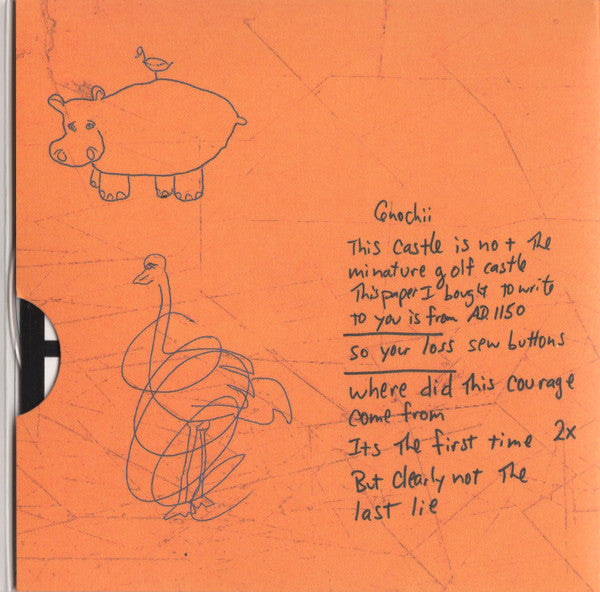 Gnochii
This castle is not The
minature golf castle
This paper I bought to write
to you is from A.D. 1150
so your loss sew buttons
where did This courage
come from
Its The first time 2x
But clearly not The
last lie